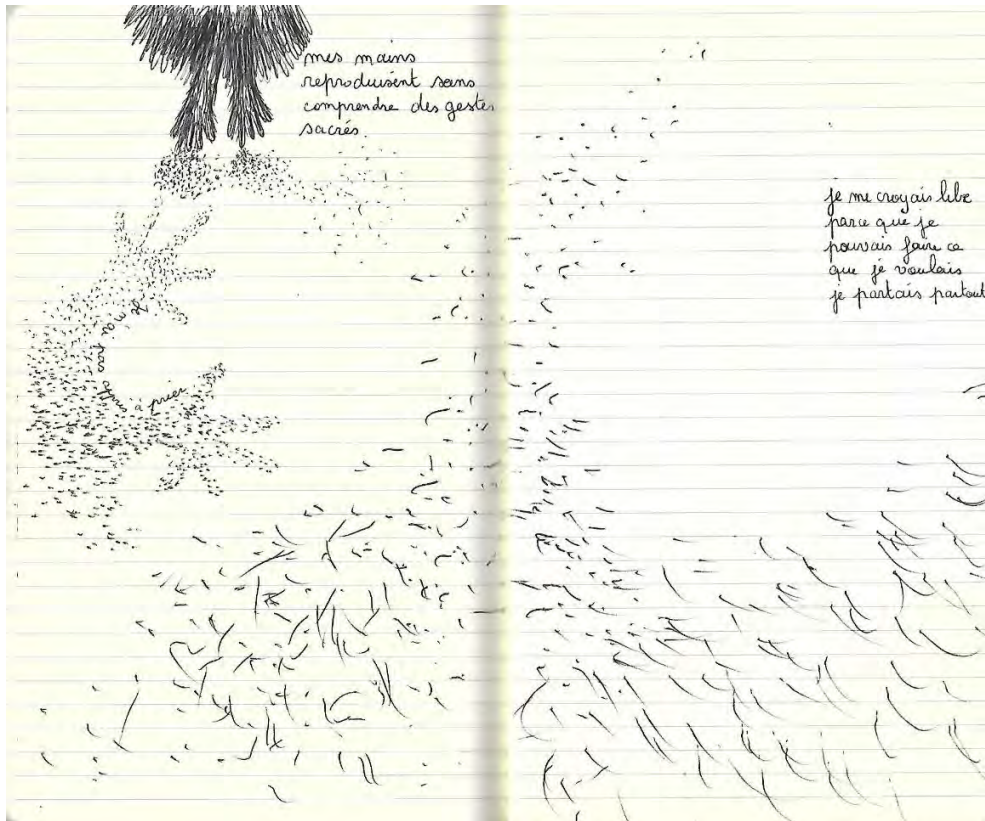 mes mains
reproduisent sans
comprendre des gestes
sacrés.
je n'ai pas appris à prier
je me croyais libre
parce que je
pouvais faire ce
que je voulais
je partais partout